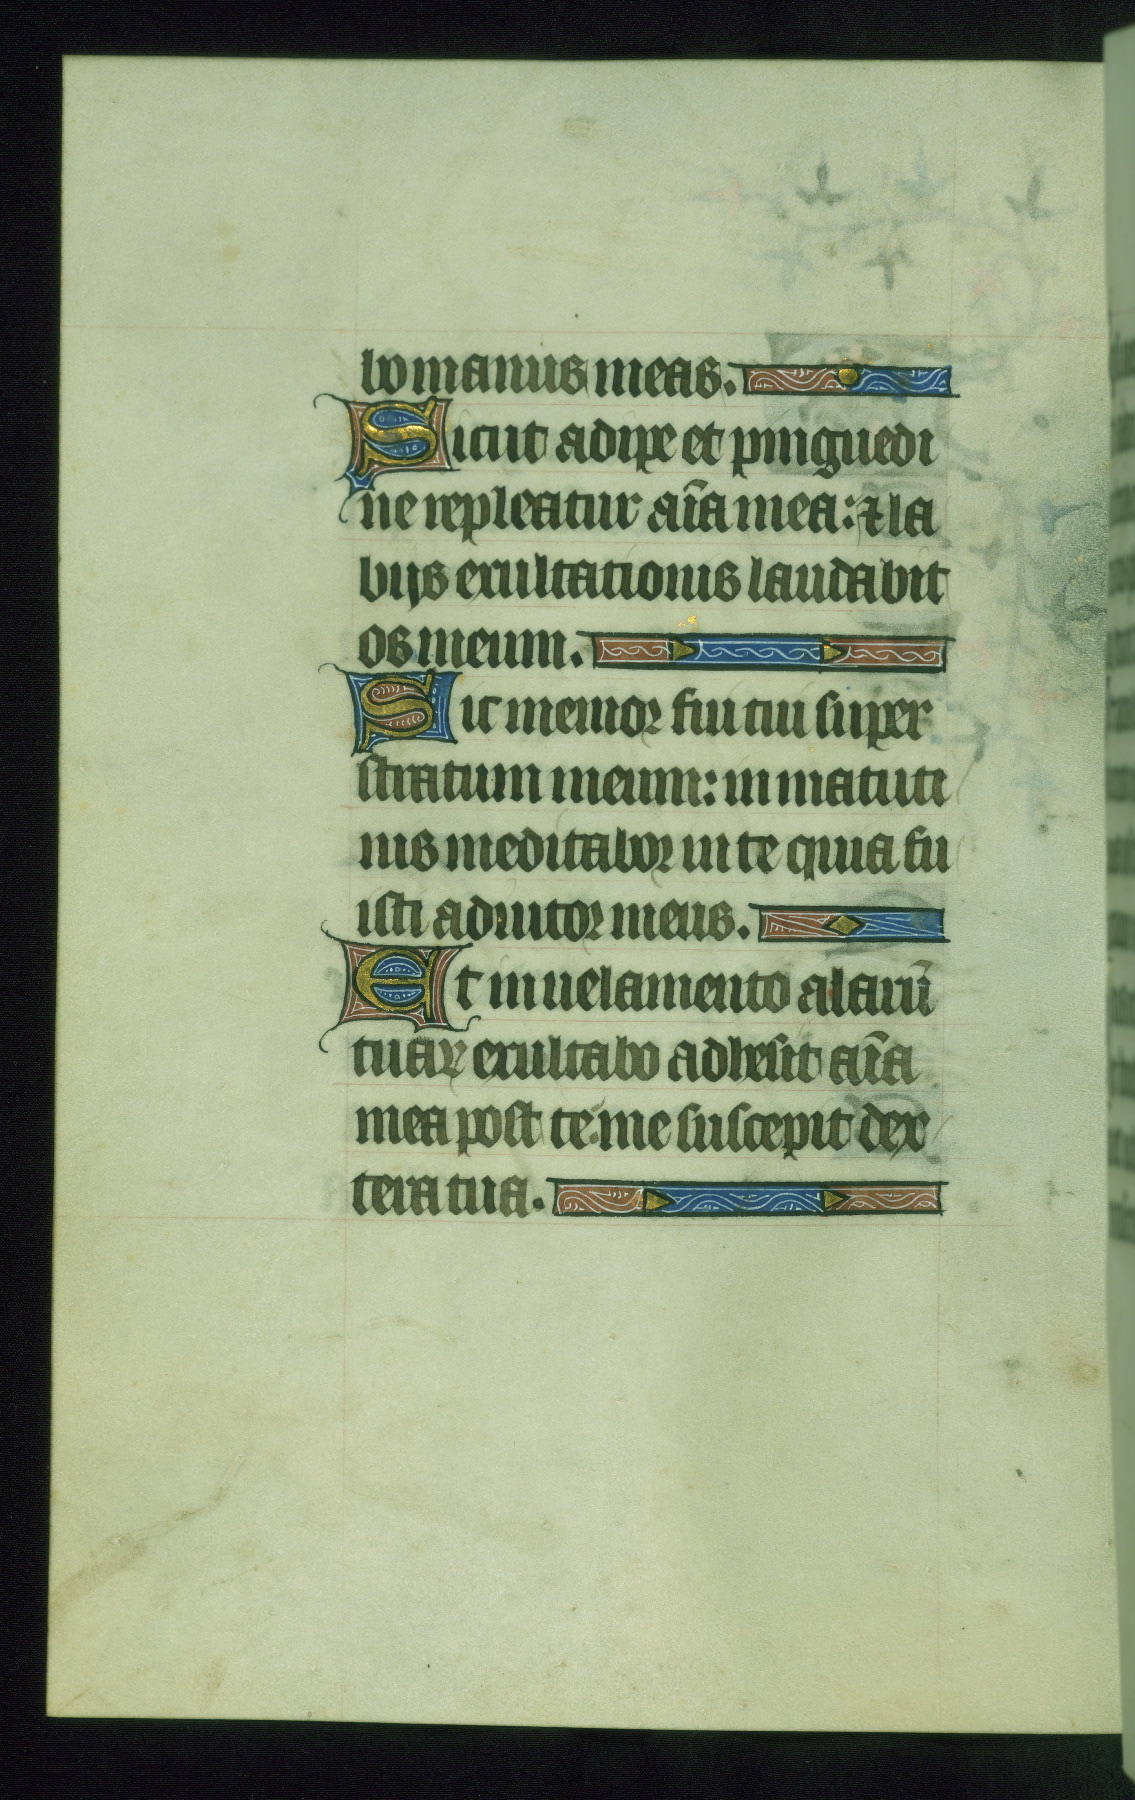 bo manus meas.
Sicut adipe et pinguedi
ne repleatur aīa mea: ⁊ la
bijs exultationis laudabit
os meum.
Sic memor fui tui super
stratum meum: in matuti
nis meditabor in te quia fu
isti adiutor meus.
Et in uelamento alarū
tuaꝝ exultabo adhesit aīa
mea post te: me suscepit dex
tera tua.